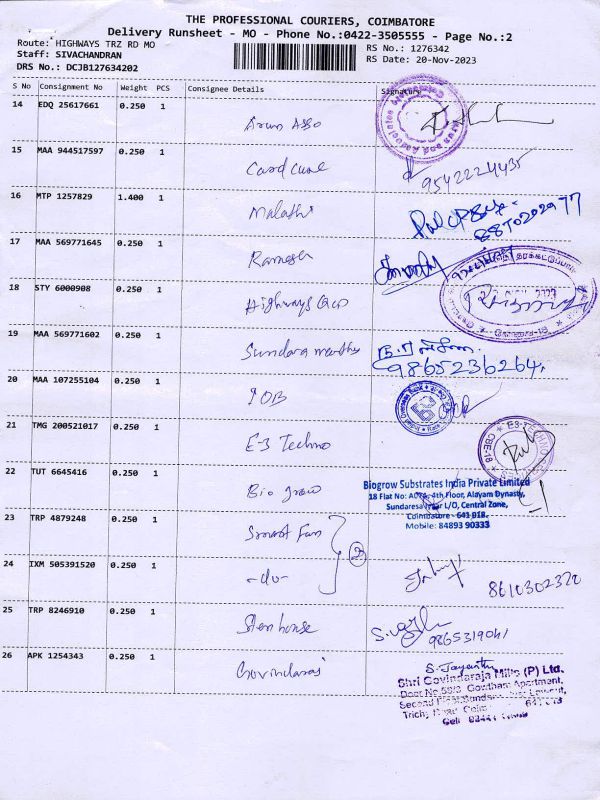 THE PROFESSIONAL COURIERS, COIMBATORE
Delivery Runsheet - MO - Phone No.:0422-3505555 - Page No.:2
Route: HIGHWAYS TRZ RD MO
RS No.: 1276342
Staff: SIVACHANDRAN
RS Date: 20-Nov-2023
DRS No.: DCJB127634202
S No Consignment No Weight PCS Consignee Details Signature
14 EDQ 25617661 0.250 1
Arun Asso
15 MAA 944517597 0.250 1
Card cure
9542224435
16 MTP 1257829 1.400 1
Malathi
8870202977
17 MAA 569771645 0.250 1
Ramesh
18 STY 6000908 0.250 1
Highways
19 MAA 569771602 0.250 1
Sundara
9865236264
20 MAA 107255104 0.250 1
IOB
21 TMG 200521017 0.250 1
E-3 Techno
22 TUT 6645416 0.250 1
Bio grow
Biogrow Substrates India Private Limited
18 Flat No: 4th Floor, Alayam Dynasty,
L/O, Central Zone,
Coimbatore - 641 018.
Mobile: 84893 90333
23 TRP 4879248 0.250 1
Smart Fan
2
24 IXM 505391520 0.250 1
-do-
8610302320
25 TRP 8246910 0.250 1
Sten house
9865319041
26 APK 1254343 0.250 1
Govindaraj
S. Jayanthi
Shri Govindaraja Mills (P) Ltd.
Gowtham Apartment,